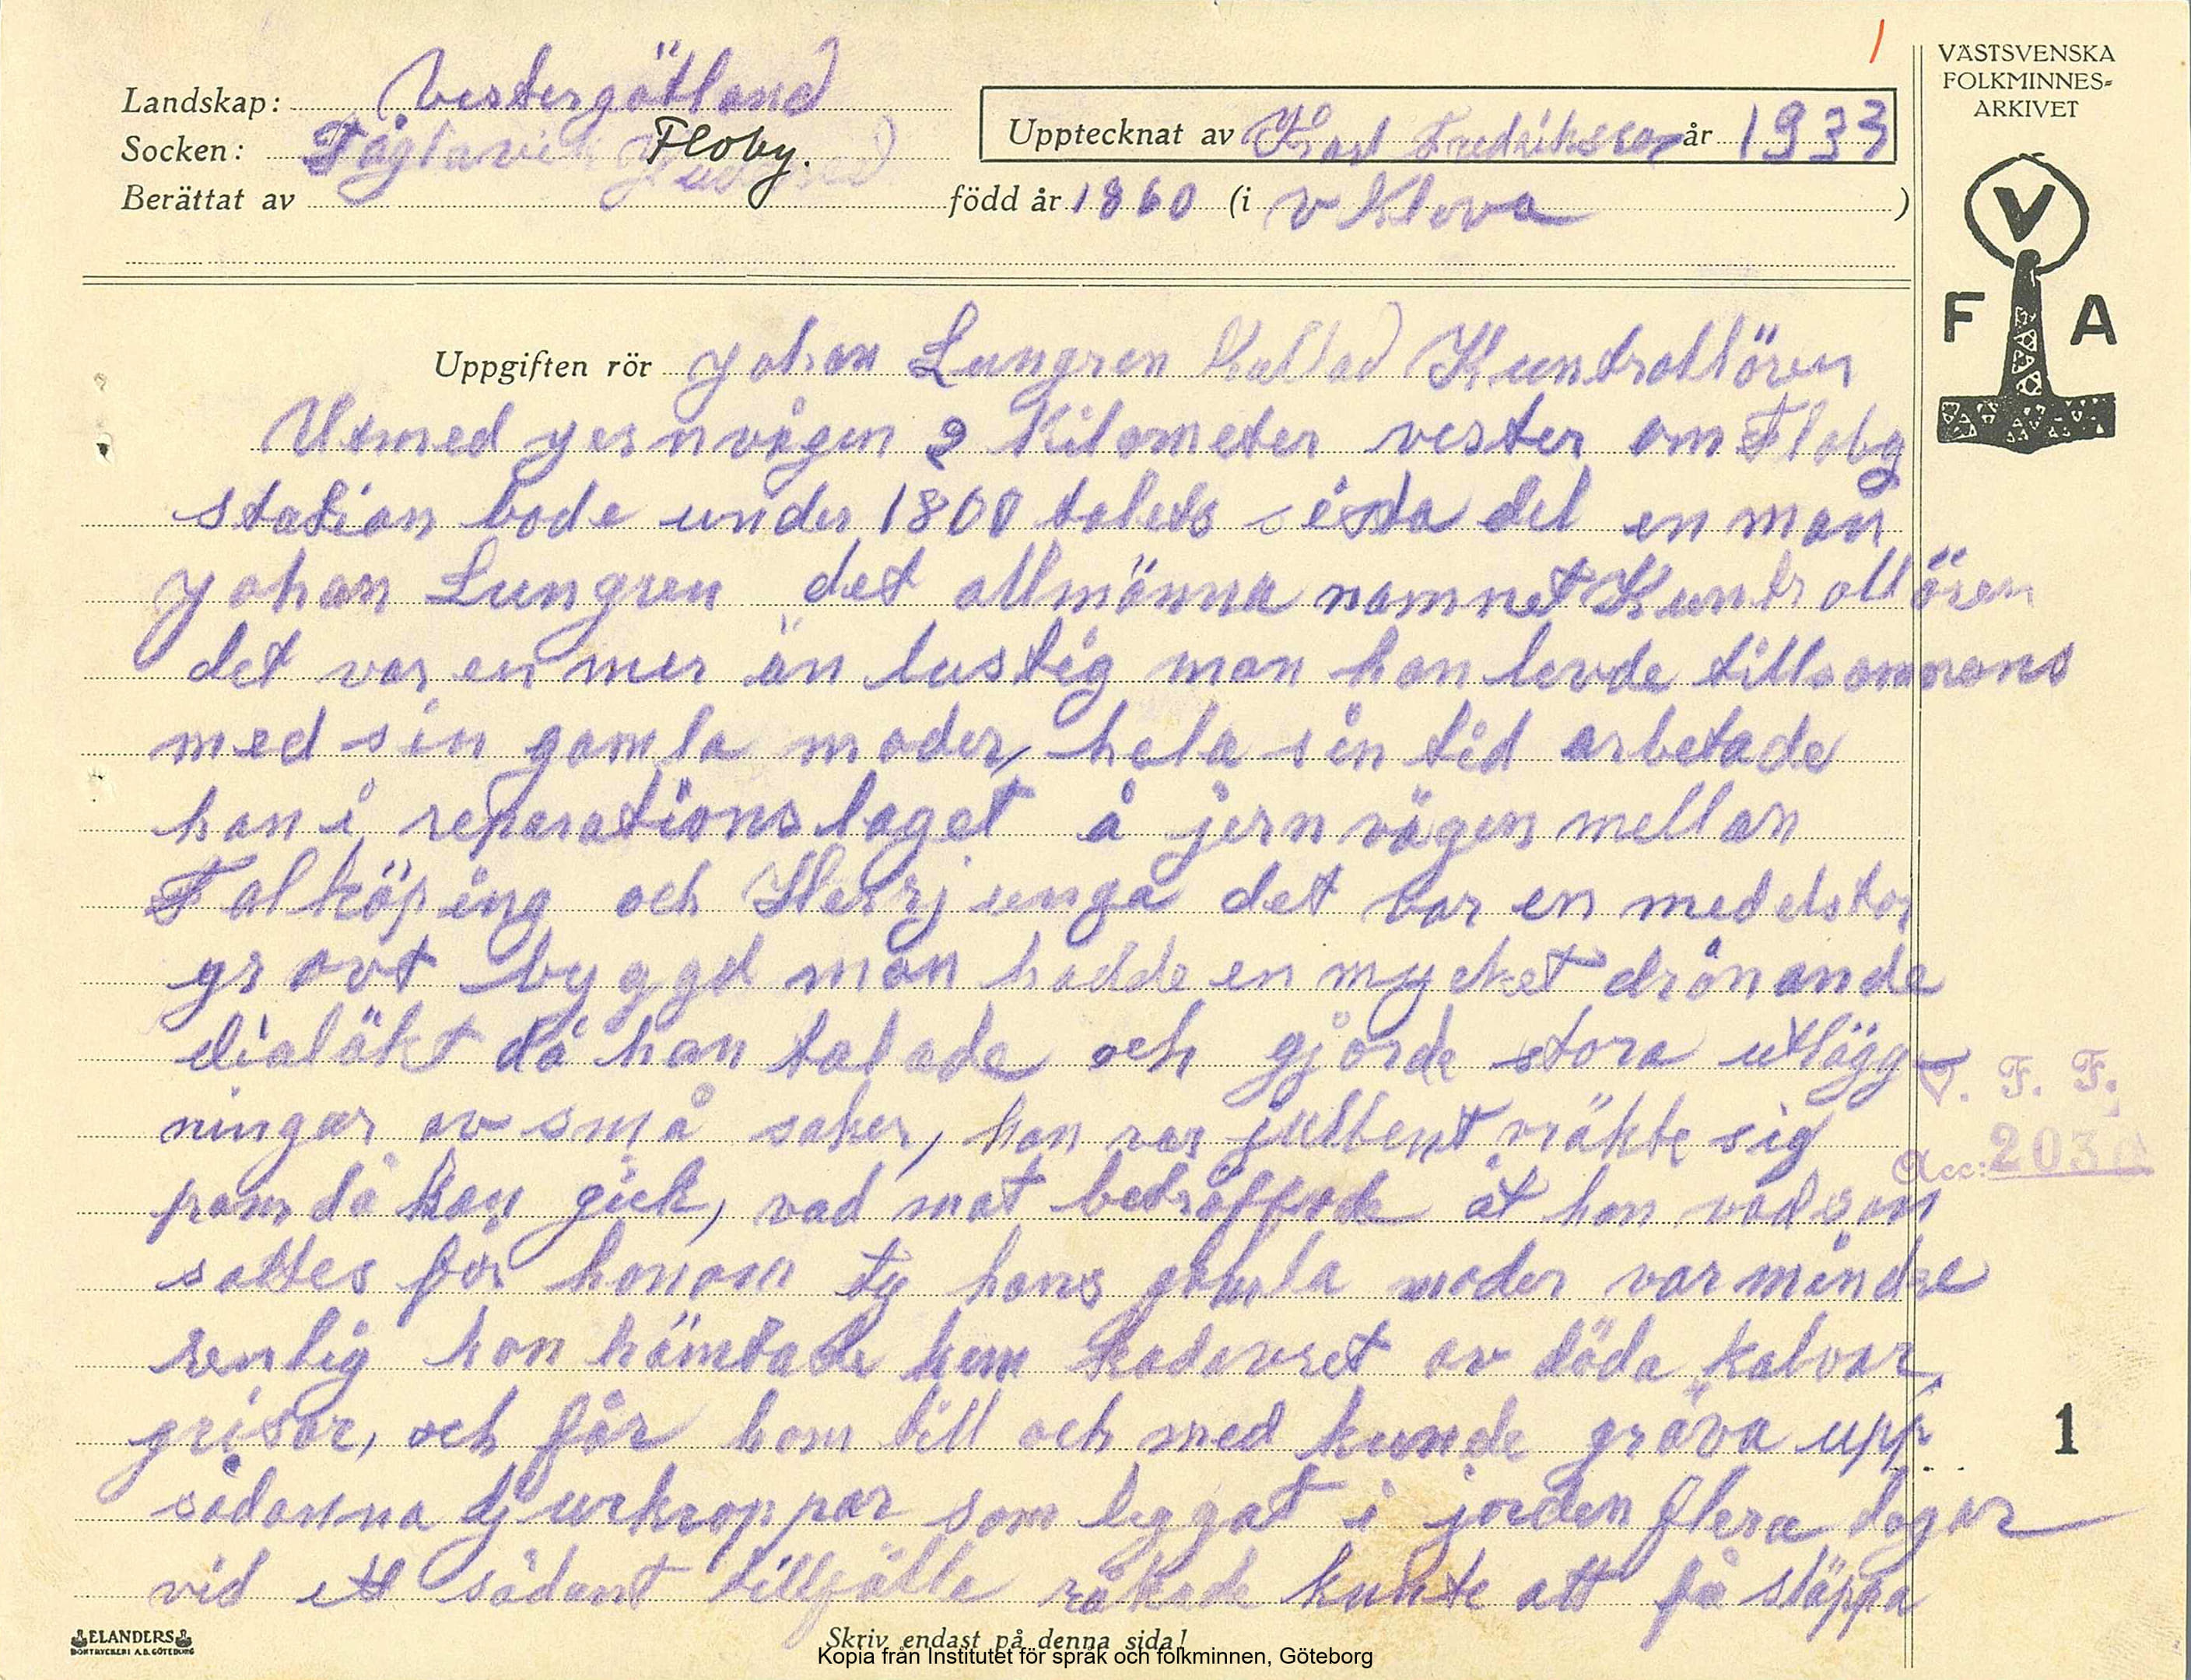 VÄSTSVENSKA
FOLKMINNES-
ARKIVET
V
F A
Landskap: Vestergötland
Socken: Floby.
Upptecknat av Karl Fredriksson år 1933
Berättat av född år 1860 (i v Kleva )
Uppgiften rör Johan Lungren Kallad Kuntrollören
Utmed yernvägen 2 Kilometer vester om Floby
station bode under 1800 talets sista del en man
Johan Lungren det allmänna namnet Kuntrollören
det var en mer än lustig man han levde tillsammans
med sin gamla moder, hela sin tid arbetade
han i reparationslaget å jernvägen mellan
Falköping och Herrjunga det var en medelstor
grovt byggd man hadde en mycket drönande
dialäkt då han talade och gjorde stora utlägg-
ningar av små saker, han var julbent vräkte sig
fram då han gick, vad mat beträffade åt han vad som
sattes för honom ty hans gamla moder var mindre
renlig hon hämtade hem kadavret av döda kalvar,
grisar, och får hon till och med kunde gräva upp
sådanna djurkroppar som leggat i jorden flera dagar
vid ett sådant tillfälle råkade kunte att få släppa
V. F. F.
Acc: 2030
1
ELANDERS
BOKTRYCKERI A.B. GÖTEBORG
Skriv endast på denna sida!
Kopia från Institutet för språk och folkminnen, Göteborg